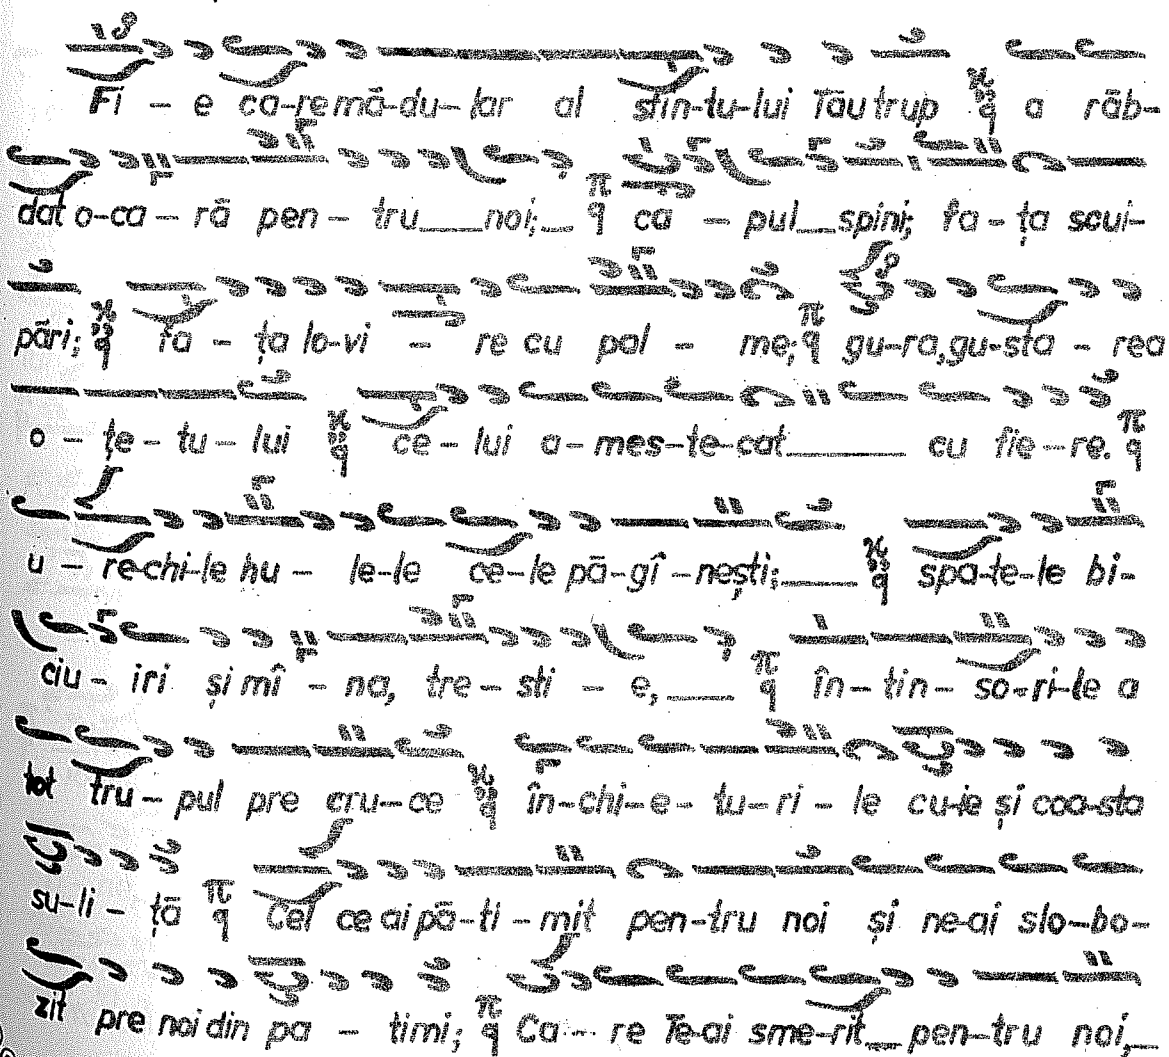 Fi – e ca-re mă-du-lar al sfin-tu-lui Tău trup a răb-
dat o-ca – ră pen – tru___noi;__ ca – pul__spini; fa – ța scui-
pări; fa – ța lo-vi – re cu pal – me; gu-ra, gu-sta – rea
o – țe – tu – lui ce – lui a-mes-te-cat______ cu fie – re.
u – re-chi-le hu – le-le ce-le pă-gî-nești;____ spa-te-le bi-
ciu – iri și mî – na, tre – sti – e,____ în – tin – so-ri-le a
tot tru – pul pre cru – ce în-chi-e – tu – ri – le cu-ie și coa-sta
su-li – ță Cel ce ai pă-ti – mit pen-tru noi și ne-ai slo-bo-
zit pre noi din pa – timi; Ca – re Te-ai sme-rit__pen-tru noi,__